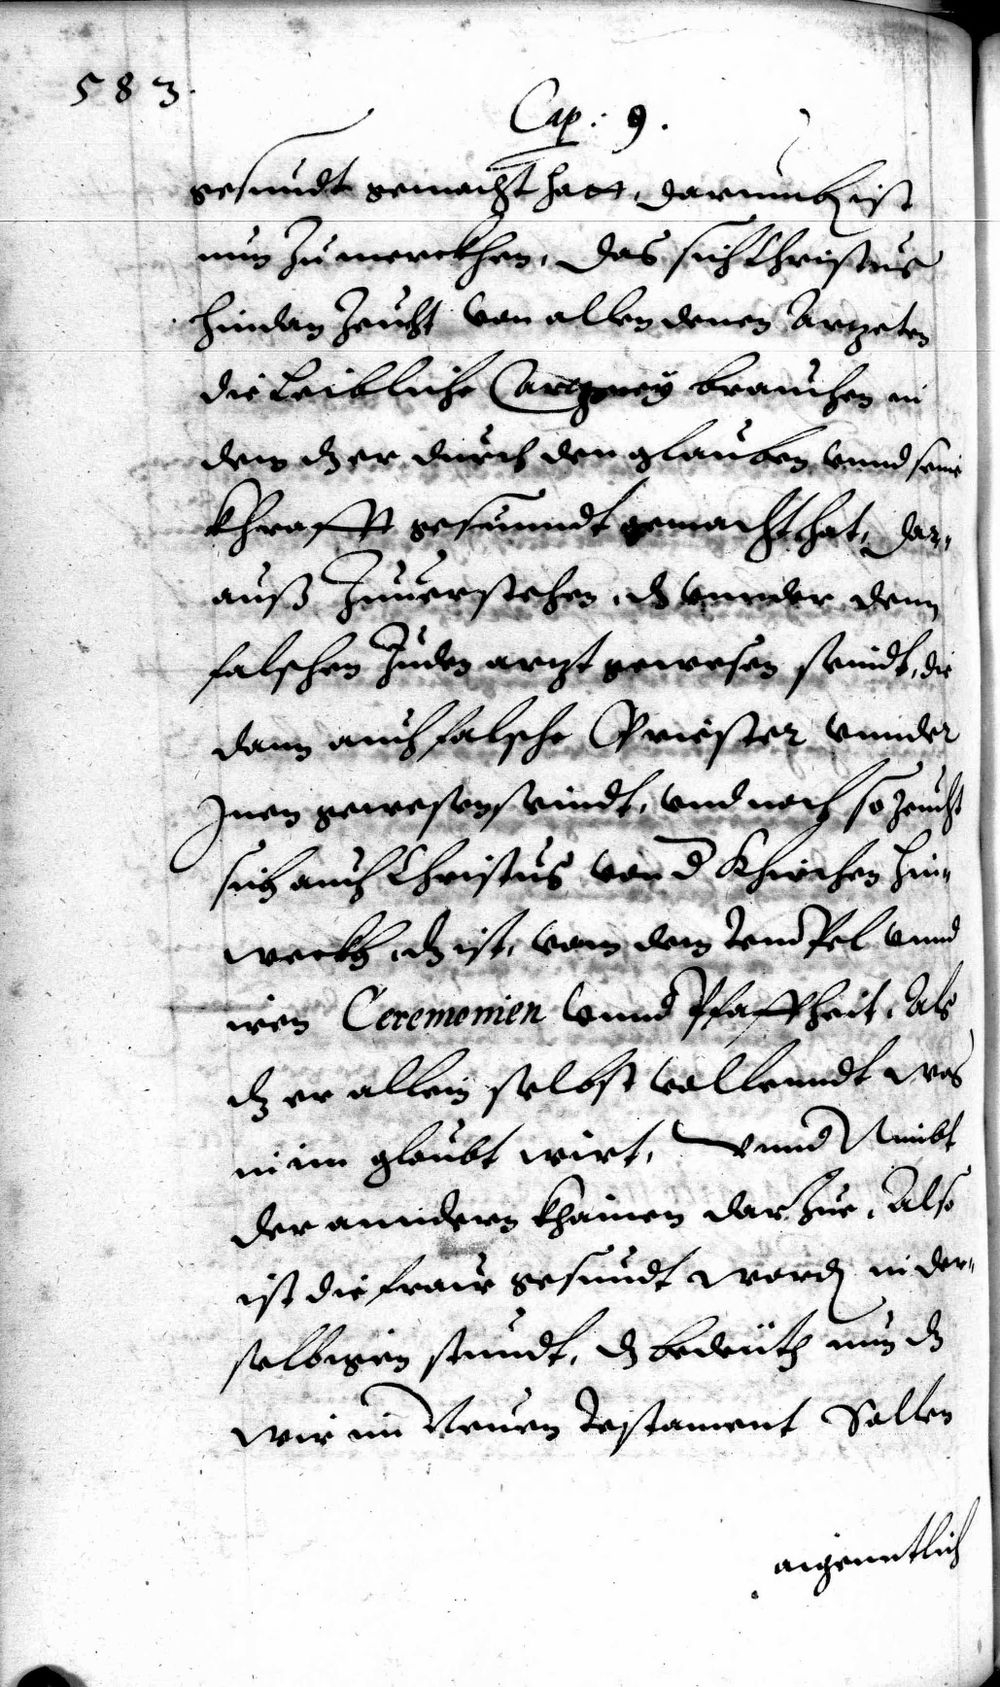 583.
Cap: 9.
gesundt gemacht hatt, darumb ist
nun zu merckhen, das sich Christus
hindan zeucht von allen denen Artzeten
die leibliche Artzney brauchen in
dem dz er durch den glauben unnd seine
khrafft gesunndt gemacht hat, dar-
auß zuuerstehen, dz unnder denn
falschen Juden artzt gewesen seindt, die
dann auch falsche Priester unnder
Inen gewesen seindt, und noch so zeucht
sich auch Christus von d Khirchen hin-
weckh, dz ist, vom dem Tempel unnd
iren Ceremonien unnd Pfaffheit, Als
dz er allein selbst vollenndt was
in im glaubt wirt, unnd Nimbt
der anndern khainen darzue, Also
ist die fraw gesundt word in der-
selbigen stundt, dz bedeüth nun dz
wir im Neuen Testament Sollen
aigenntlich